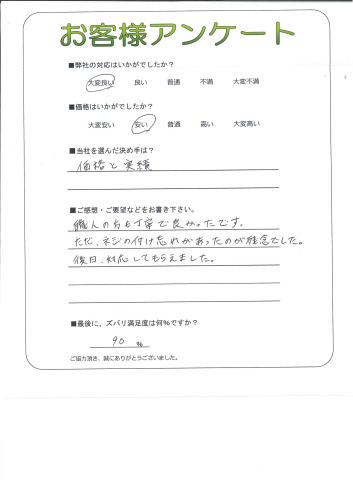 お客様アンケート
■弊社の対応はいかがでしたか?
大変良い 良い 普通 不満 大変不満
■価格はいかがでしたか?
大変安い 安い 普通 高い 大変高い
■当社を選んだ決め手は?
価格と実績
■ご感想・ご要望などをお書き下さい。
職人の方も丁寧で良かったです。
ただ、ネジの付け忘れがあったのが残念でした。
後日、対応してもらえました。
■最後に、ズバリ満足度は何%ですか?
90 %
ご協力頂き、誠にありがとうございました。